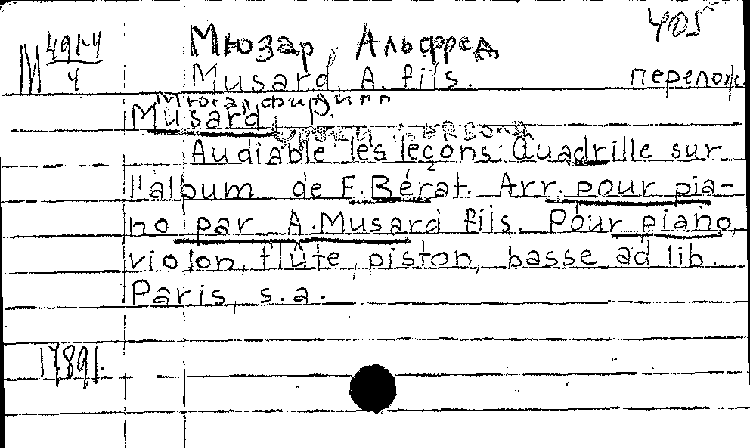 405
М 491-4/4 Мюзар, Альфред
Musard, A. fils. перелож
Мюзар, Филипп
Musard, P.
Au diable les leçons. Quadrille sur
l'album de F. Bérat. Arr. pour pia-
no par A. Musard fils. Pour piano,
violon, flûte, piston, basse ad lib.
Paris, s.a.
17891.